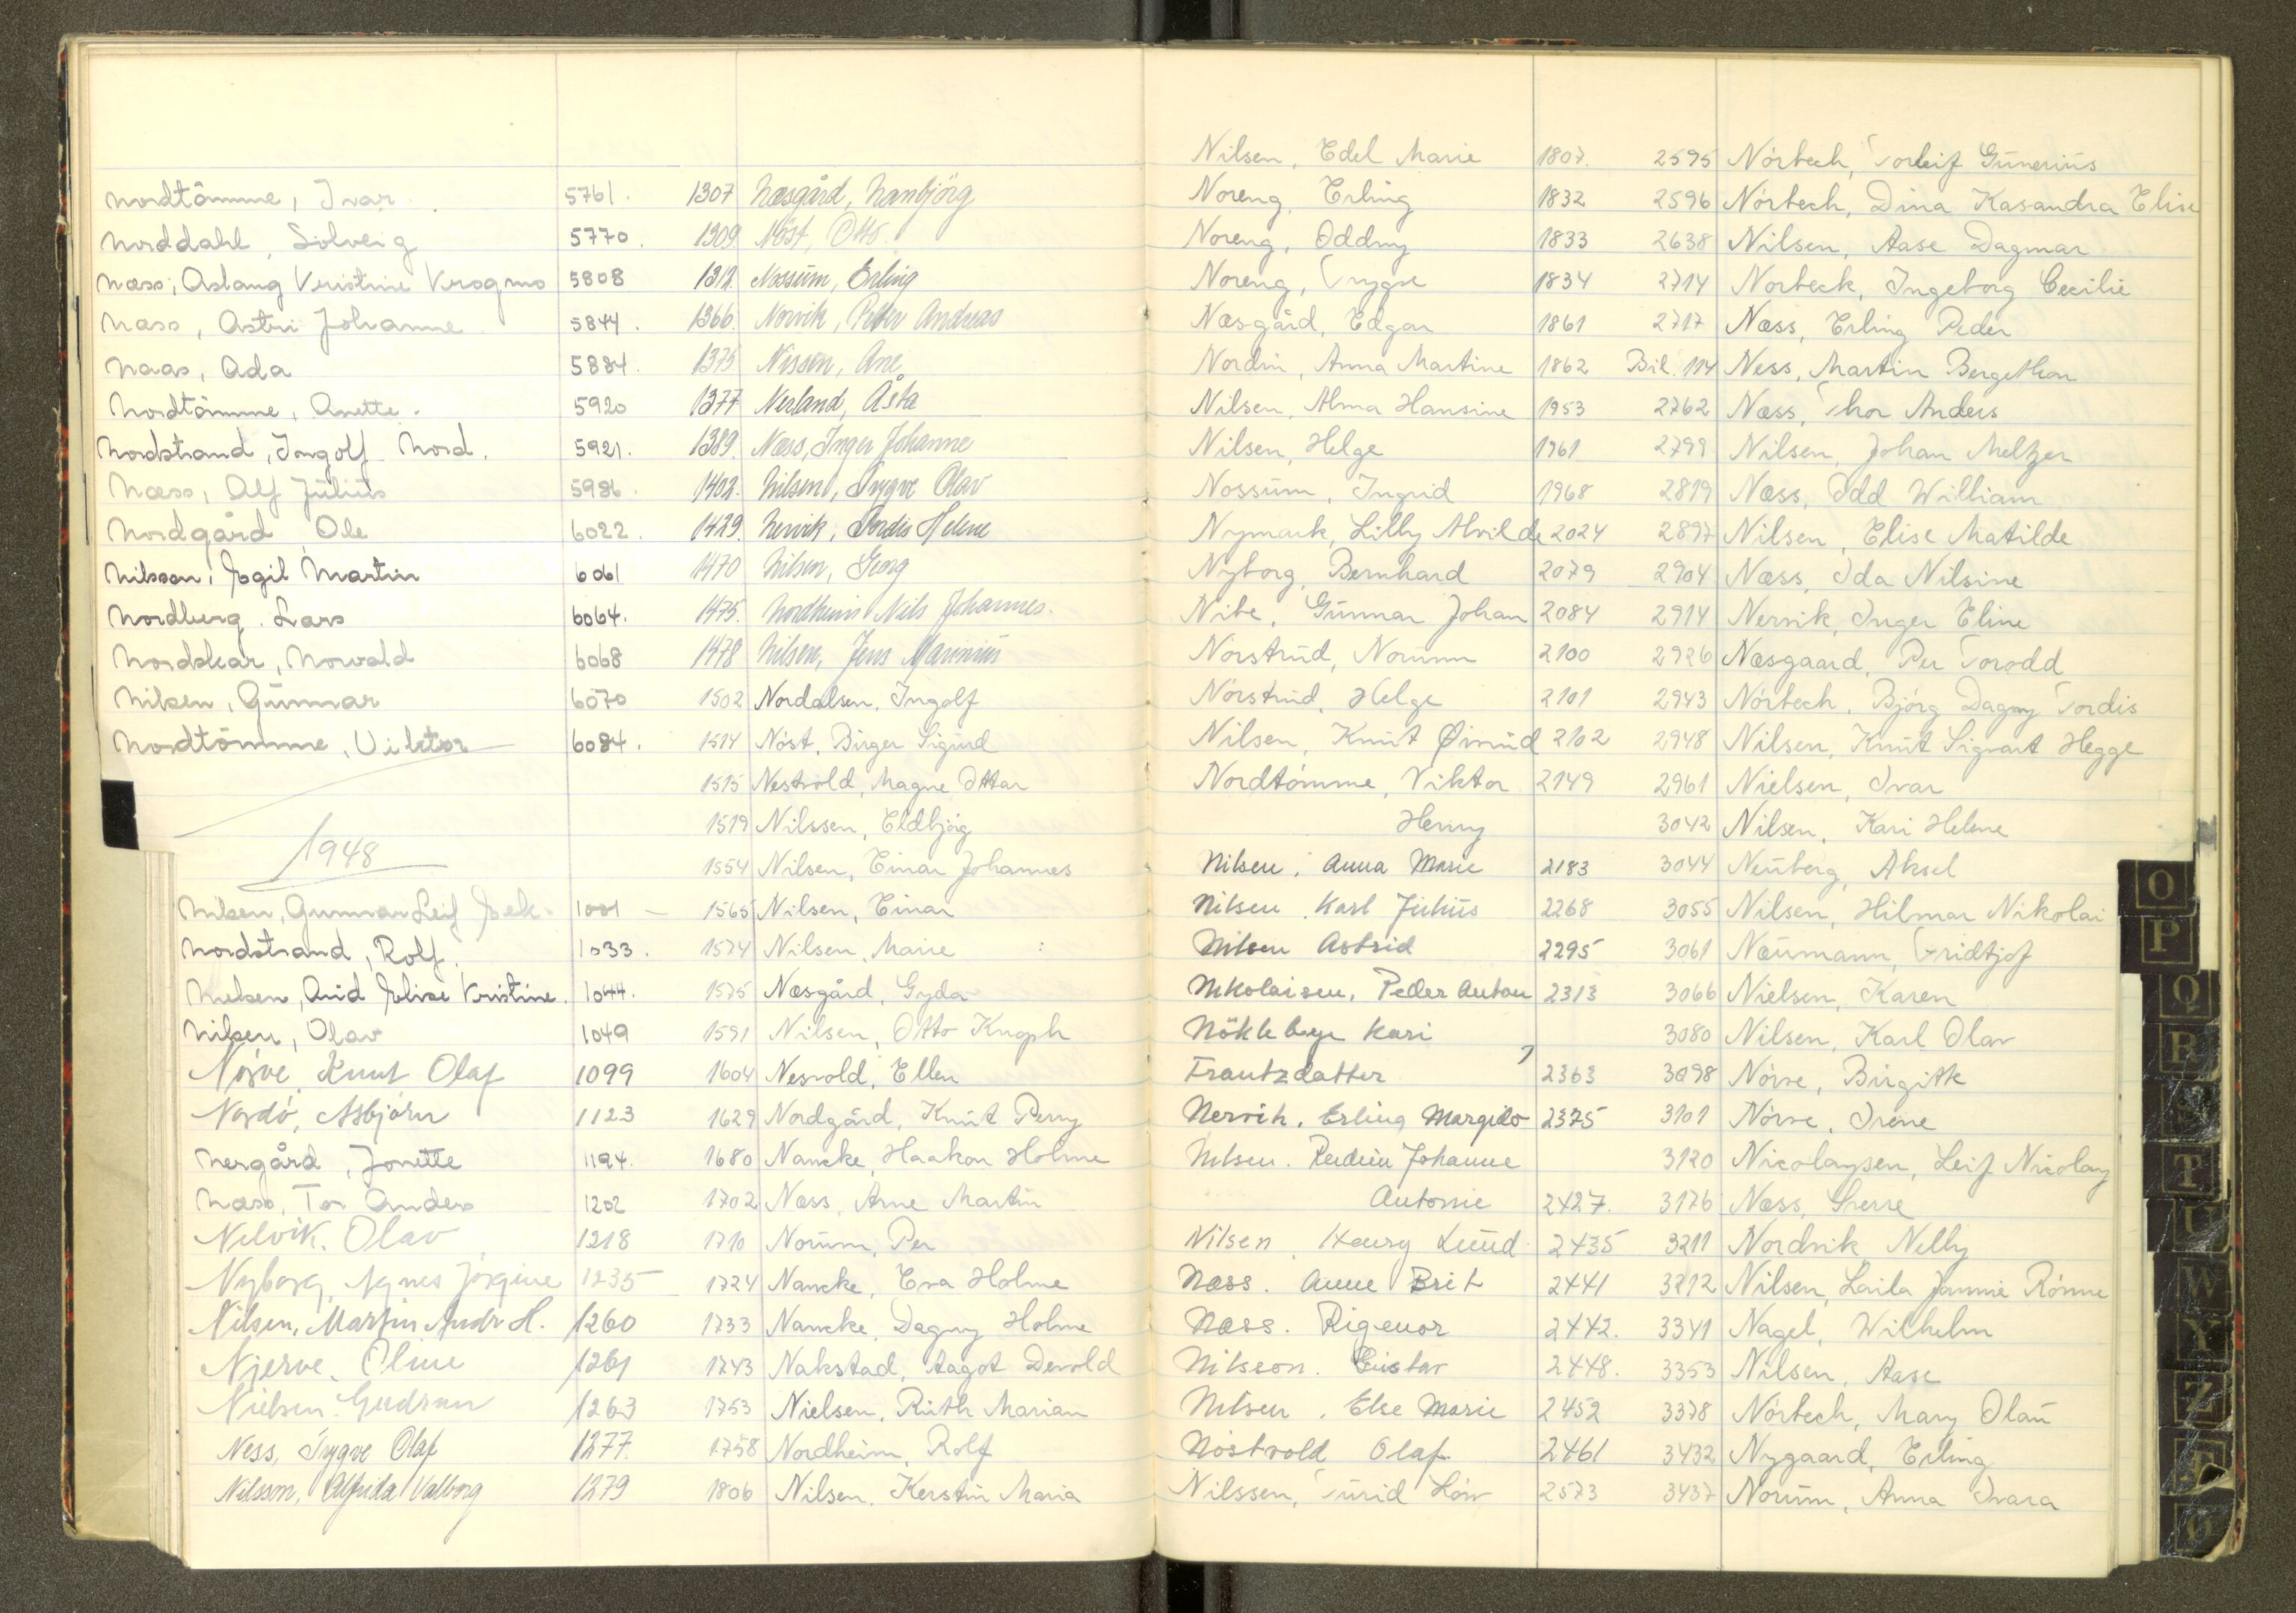 Nordtömme, Ivar 5761.
Norddahl, Solveig 5770.
Næss, Aslaug Kristine Krogmo 5808
Næss, Astri Johanne 5844.
Naas, Ada 5884.
Nordtömme, Anette. 5920
Nordstrand, Ingolf Nord. 5921.
Næss, Alf Julius 5986.
Nordgård, Ole 6022.
Nilsson, Egil Martin 6061
Nordberg. Lars 6064.
Nordskar, Norvald 6068
Nilsen, Gunnar 6070
Nordtömme, Viktor 6084.
1948
Nilsen, Gunnar Leif Eek. 1001
Nordstrand, Rolf. 1033.
Nielsen, Arid Elise Kristine. 1044.
Nilsen, Olav 1049
Nørve, Knut Olaf 1099
Nordö, Asbjörn 1123
Nergård, Jonette 1194.
Næss, Tor Anders 1202
Nelvik. Olav 1218
Nyborg, Agnes Jørgine 1235
Nilsen, Martin Andr H. 1260
Njerve, Oline 1261
Nielsen. Gudrun 1263
Ness, Trygve Olaf 1277.
Nilsson, Alfrida Valborg 1279
1307 Næsgård, Nanbjörg
1309 Nöst, Otto.
1312. Nossum, Erling
1366. Norvik, Peter Andreas
1375. Nissen, Ane
1377 Nesland, Åsta
1389. Næss, Inger Johanne
1402. Nilsen, Trygve Olav
1429. Nervik, Tordis Helene
1470 Nilsen, Georg
1475. Nordheim Nils Johannes.
1478 Nilsen, Jens Marinius
1502 Nordalsen, Ingolf
1514 Nöst, Birger Sigurd
1515 Nestvold, Magne Ottar
1519 Nilssen, Eldbjörg
1554 Nilsen, Einar Johannes
1565 Nilsen, Einar
1574 Nilsen, Marie
1575 Næsgård, Gyda
1591 Nilsen, Otto Kngsh
1604 Nesvold, Ellen
1629 Nordgård, Knut Perry
1680 Nancke, Haakon Holme
1702 Næss, Arne Martin
1710 Norum, Per
1724 Nancke, Eva Holme
1733 Nancke, Dagny Holme
1743 Nakstad, Aagot Devold
1753 Nielsen, Ruth Marian
1758 Nordheim, Rolf
1806 Nilsen, Kerstin Maria
Nilsen, Edel Marie 1807.
Noreng, Erling 1832
Noreng, Oddny 1833
Noreng, Trygve 1834
Næsgård, Edgar 1861
Nordin, Anna Martine 1862
Nilsen, Alma Hansine 1953
Nilsen, Helge 1961
Nossum, Ingrid 1968
Nymark, Lilly Alvilde 2024
Nyborg, Bernhard 2079
Nibe, Gunnar Johan 2084
Nörstrud, Norunn 2100
Nörstrud, Helge 2101
Nilsen, Knut Øivind 2102
Nordtömme, Viktor 2149
Henry
Nilsen, Anna Marie 2183
Nilsen, Karl Julius 2268
Nilsen Astrid 2295
Nikolaisen, Peder Anton 2313
Nökleby Kari
Frantzdatter 2363
Nervik, Erling Margido 2375
Nilsen. Johanne
Antonie 2427.
Nilsen, Henry Lund 2435
Næss. Anne Brit 2441
Næss. Rigenor 2442.
Nilsson. Gustav 2448.
Nilsen. Else Marie 2452
Nöstvold Olaf 2461
Nilssen, Turid Löw 2573
2595 Nörbech, Torleif Gunerius
2596 Nörbech, Dina Kasandra Elise
2638 Nilsen, Aase Dagmar
2714 Norbeck, Ingeborg Cecilie
2717 Næss, Erling Peder
Bil. 114 Ness, Martin Bergethon
2762 Næss, Thor Anders
2799 Nilsen, Johan Meltzer
2819 Næss, Odd William
2897 Nilsen, Elise Matilde
2904 Næss, Ida Nilsine
2914 Nervik, Inger Eline
2926 Næsgaard, Per Torodd
2943 Nörbech, Bjørg Dagny Tordis
2948 Nilsen, Knut Sigvart Hegge
2961 Nielsen, Ivar
3042 Nilsen, Kari Helene
3044 Neuberg, Aksel
3055 Nilsen, Hilmar Nikolai
3061 Næumann, Fridtjof
3066 Nielsen, Karen
3080 Nilsen, Karl Olav
3098 Nörve, Birgitte
3101 Nörve, Irene
3120 Nicolaysen, Leif Nicolay
3176 Næss, Sverre
3211 Nordvik, Nelly
3212 Nilsen, Laila Jannie Rönne
3341 Nagel, Wilhelm
3353 Nilsen, Aase
3378 Nörbech, Mary Olau
3432 Nygaard, Erling
3437 Norum, Anna Ivara
O
P
Q
R
S
T
U
W
Y
Z
Æ
Ø